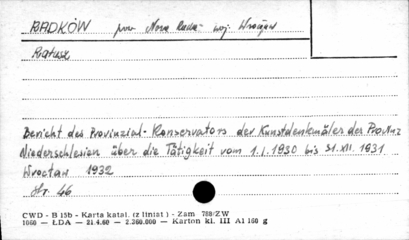 RADKÓW pow Nowa Ruda woj. Wrocław
Ratusz
Bericht des Provinzial-Konservators der Kunstdenkmäler der Provinz
Niederschlesien über die Tätigkeit vom 1.I.1930 bis 31.XII.1931
Wrocław 1932
Str. 46
CWD - B 15b - Karta katal. (z liniat) - Zam 788/ZW
1060 - ŁDA - 21.4.60 - 2.260.000 - Karton kl. III A1 160 g